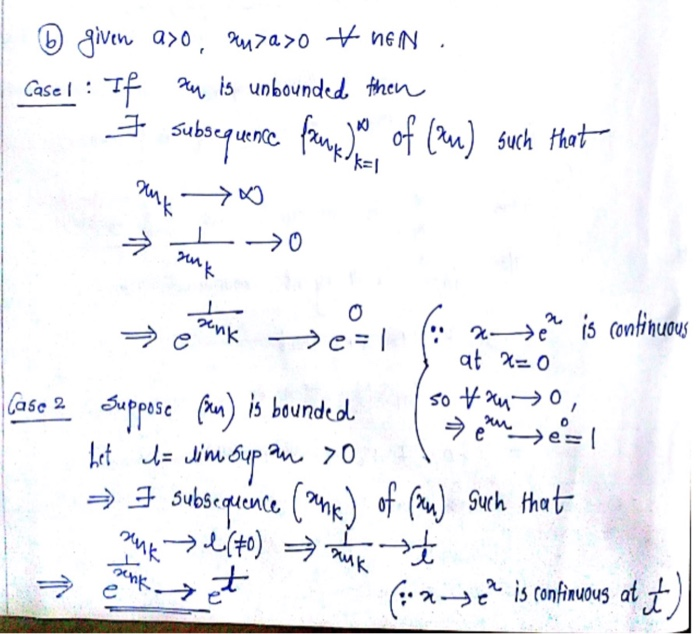 ⓑ given a>0, xₙ>a>0 ∀ n∈ℕ.
Case 1 : If xₙ is unbounded then
∃ subsequence (xₙₖ)^∞_{k=1} of (xₙ) such that
xₙₖ → ∞
⇒ 1/xₙₖ → 0
⇒ e^{1/xₙₖ} → e^0 = 1 (∵ x → e^x is continuous
at x=0
so ∀ xₙ → 0,
⇒ e^{xₙ} → e^0 = 1
Case 2 Suppose (xₙ) is bounded
Let l = lim sup xₙ > 0
⇒ ∃ subsequence (xₙₖ) of (xₙ) such that
xₙₖ → l (≠0) ⇒ 1/xₙₖ → 1/l
⇒ e^{1/xₙₖ} → e^{1/l} (∵ x → e^x is continuous at 1/l)